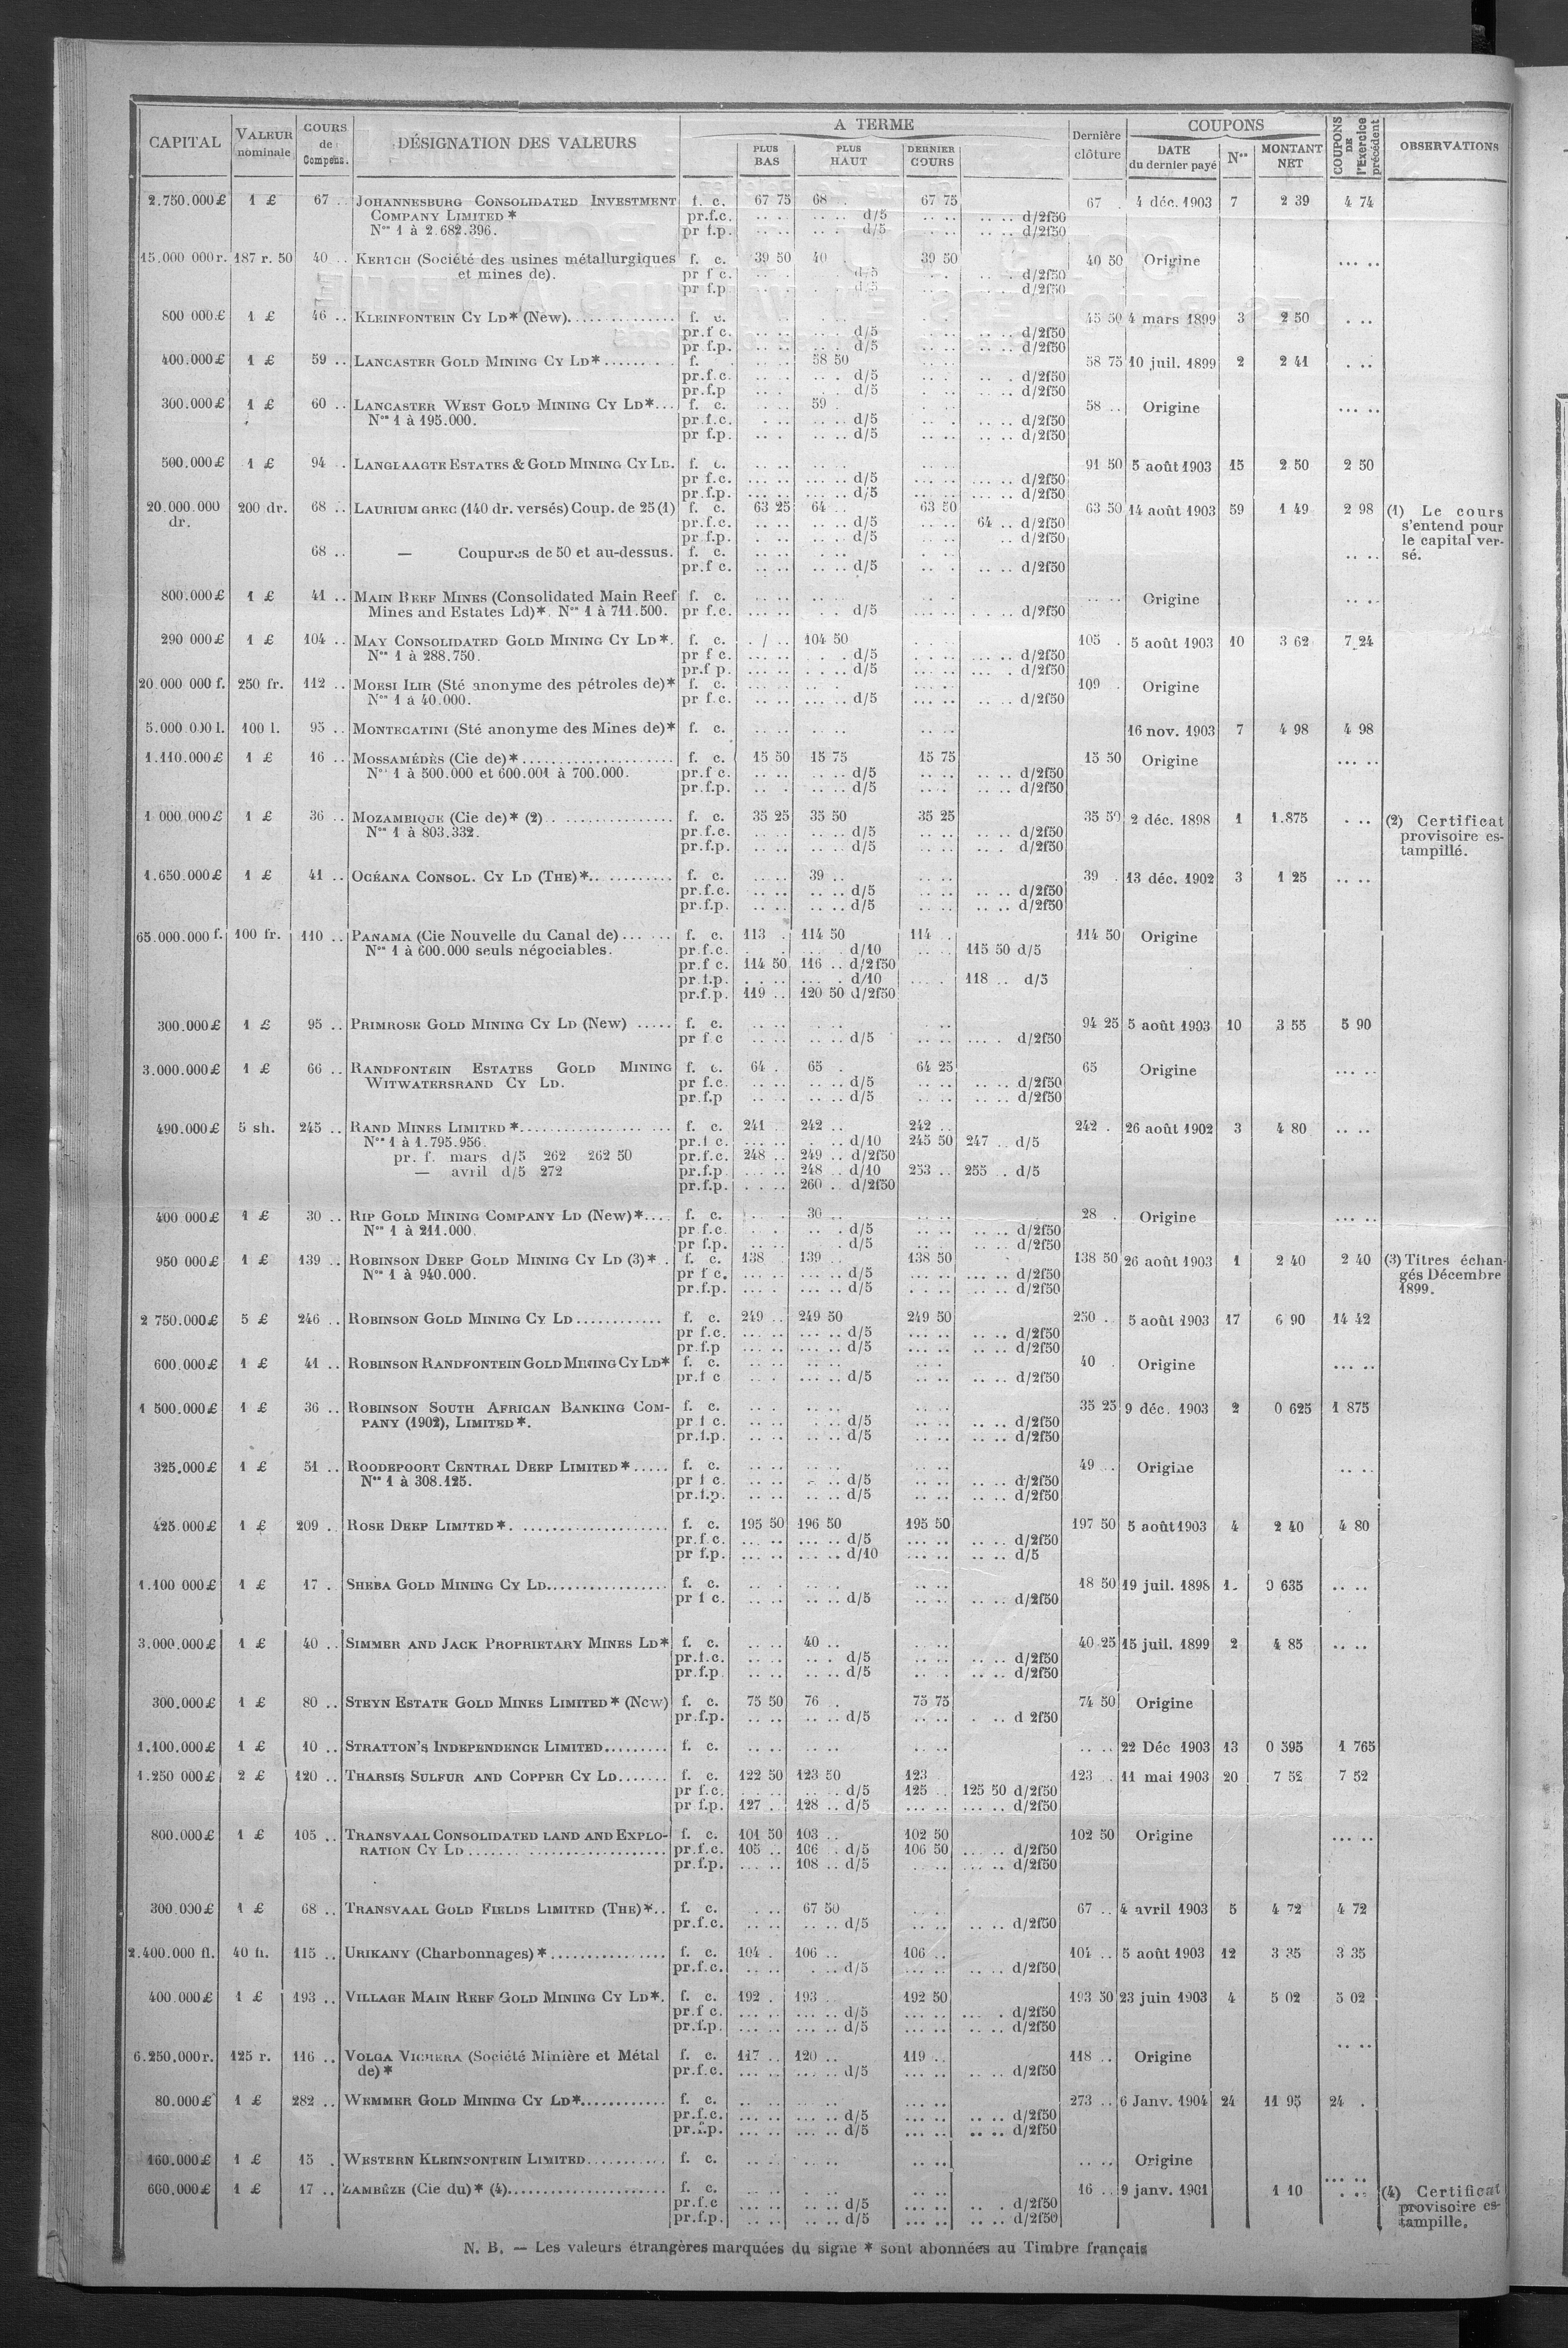 CAPITAL | VALEUR nominale | COURS de Compens. | DÉSIGNATION DES VALEURS | A TERME | PLUS BAS | PLUS HAUT | DERNIER COURS | Dernière clôture | COUPONS | DATE du dernier payé | Nos | MONTANT NET | COUPONS DE l'Exercice précédent | OBSERVATIONS
2.750.000£ 1 £ 67 .. JOHANNESBURG CONSOLIDATED INVESTMENT f. c. 67 75 68 . 67 75 67 . 4 déc. 1903 7 2 39 4 74
COMPANY LIMITED * pr.f.c. .. .. .. .. d/5 .. .. .. .. d/2f50
Nos 1 à 2.682.396. pr f.p. .. .. .. . d/5 .. .. .. .. d/2f50
15.000 000r. 187 r. 50 40 .. KERTCH (Société des usines métallurgiques f. c. 39 50 40 . 39 50 40 50 Origine ... ..
et mines de). pr f c. d/5 d/2f50
pr f.p d/5 d/2f50
800 000£ 1 £ 46 .. KLEINFONTEIN CY LD* (New). f. c. 45 50 4 mars 1899 3 2 50
pr.f c. d/5 d/2f50
pr f.p. d/5 d/2f50
400.000£ 1 £ 59 .. LANCASTER GOLD MINING CY LD* f. 58 50 58 75 10 juil. 1899 2 2 41
pr.f.c. d/5 d/2f50
pr.f.p d/5 d/2f50
300.000£ 1 £ 60 .. LANCASTER WEST GOLD MINING CY LD* f. c. 59 . 58 .. Origine ... ..
Nos 1 à 195.000. pr.f.c. d/5 d/2f50
pr f.p. d/5 d/2f50
500.000£ 1 £ 94 .. LANGLAAGTE ESTATES & GOLD MINING CY LD. f. c. 91 50 5 août 1903 15 2 50 2 50
pr f.c. d/5 d/2f50
pr.f.p. d/5 d/2f50
20.000.000 200 dr. 68 .. LAURIUM GREC (140 dr. versés) Coup. de 25 (1) f. c. 63 25 64 .. 63 50 63 50 14 août 1903 59 1 49 2 98 (1) Le cours
dr. pr.f.c. d/5 64 .. d/2f50 s'entend pour
pr f.p. d/5 d/2f50 le capital ver-
68 .. — Coupures de 50 et au-dessus. f. c. sé.
pr.f c. d/5 d/2f50
800.000£ 1 £ 41 .. MAIN REEF MINES (Consolidated Main Reef f. c. Origine
Mines and Estates Ld)*. Nos 1 à 711.500. pr f.c. d/5 d/2f50
290 000£ 1 £ 104 .. MAY CONSOLIDATED GOLD MINING CY LD*. f. c. 104 50 105 . 5 août 1903 10 3 62 7 24
Nos 1 à 288.750. pr f c. d/5 d/2f50
pr.f p. d/5 d/2f50
20.000 000 f. 250 fr. 112 .. MOESI ILIR (Sté anonyme des pétroles de)* f. c. 109 . Origine
Nos 1 à 40.000. pr f.c. d/5 d/2f50
5.000 000 l. 100 l. 95 .. MONTECATINI (Sté anonyme des Mines de)* f. c. 16 nov. 1903 7 4 98 4 98
1.110.000£ 1 £ 16 .. MOSSAMÉDÈS (Cie de)* f. c. 15 50 15 75 15 75 15 50 Origine ... ..
Nos 1 à 500.000 et 600.001 à 700.000. pr.f c. d/5 d/2f50
pr.f.p. d/5 d/2f50
1 000.000£ 1 £ 36 .. MOZAMBIQUE (Cie de)* (2) f. c. 35 25 35 50 35 25 35 50 2 déc. 1898 1 1.875 (2) Certificat
Nos 1 à 803.332. pr.f.c. d/5 d/2f50 provisoire es-
pr.f.p. d/5 d/2f50 tampillé.
1.650.000£ 1 £ 41 .. OCÉANA CONSOL. CY LD (THE)* f. c. 39 .. 39 . 13 déc. 1902 3 1 25
pr.f.c. d/5 d/2f50
pr.f.p. d/5 d/2f50
65.000.000 f. 100 fr. 110 .. PANAMA (Cie Nouvelle du Canal de) f. c. 113 . 114 50 114 . 114 50 Origine
Nos 1 à 600.000 seuls négociables. pr.f.c. d/10 115 50 d/5
pr.f c. 114 50 116 .. d/2f50
pr.f.p. d/10 118 .. d/5
pr.f.p. 119 .. 120 50 d/2f50
300.000£ 1 £ 95 .. PRIMROSE GOLD MINING CY LD (New) f. c. 94 25 5 août 1903 10 3 55 5 90
pr f c d/5 d/2f50
3.000.000£ 1 £ 66 .. RANDFONTEIN ESTATES GOLD MINING f. c. 64 . 65 . 64 25 65 Origine ... ..
WITWATERSRAND CY LD. pr f.c. d/5 d/2f50
pr.f.p d/5 d/2f50
490.000£ 5 sh. 245 .. RAND MINES LIMITED * f. c. 241 . 242 .. 242 .. 242 . 26 août 1902 3 4 80
Nos 1 à 1.795.956. pr.f c. d/10 245 50 247 .. d/5
pr. f. mars d/5 262 262 50 pr.f.c. 248 .. 249 .. d/2f50
— avril d/5 272 pr.f.p. 248 .. d/10 253 .. 255 . d/5
pr.f.p. 260 .. d/2f50
400 000£ 1 £ 30 .. RIP GOLD MINING COMPANY LD (New)* f. c. 30 .. 28 . Origine ... ..
Nos 1 à 211.000. pr f.c. d/5 d/2f50
pr f.p. d/5 d/2f50
950 000£ 1 £ 139 .. ROBINSON DEEP GOLD MINING CY LD (3)* f. c. 138 139 .. 138 50 138 50 26 août 1903 1 2 40 2 40 (3) Titres échan-
Nos 1 à 940.000. pr f c. d/5 d/2f50 gés Décembre
pr.f.p. d/5 d/2f50 1899.
2 750.000£ 5 £ 246 .. ROBINSON GOLD MINING CY LD f. c. 249 .. 249 50 249 50 250 . 5 août 1903 17 6 90 14 42
pr f.c. d/5 d/2f50
pr.f.p d/5 d/2f50
600.000£ 1 £ 41 .. ROBINSON RANDFONTEIN GOLD MINING CY LD* f. c. 40 . Origine ... ..
pr.f c d/5 d/2f50
1 500.000£ 1 £ 36 .. ROBINSON SOUTH AFRICAN BANKING COM- f. c. 35 25 9 déc. 1903 2 0 625 1 875
PANY (1902), LIMITED *. pr f c. d/5 d/2f50
pr.f.p. d/5 d/2f50
325.000£ 1 £ 51 .. ROODEPOORT CENTRAL DEEP LIMITED * f. c. 49 .. Origine
Nos 1 à 308.125. pr f c. d/5 d/2f50
pr.f.p. d/5 d/2f50
425.000£ 1 £ 209 .. ROSE DEEP LIMITED * f. c. 195 50 196 50 195 50 197 50 5 août 1903 4 2 40 4 80
pr.f.c. d/5 d/2f50
pr f.p. d/10 d/5
1.100 000£ 1 £ 17 . SHEBA GOLD MINING CY LD f. c. 18 50 19 juil. 1898 1 0 635
pr f c. d/5 d/2f50
3.000.000£ 1 £ 40 .. SIMMER AND JACK PROPRIETARY MINES LD* f. c. 40 .. 40 25 15 juil. 1899 2 4 85
pr.f.c. d/5 d/2f50
pr.f.p d/5 d/2f50
300.000£ 1 £ 80 .. STEYN ESTATE GOLD MINES LIMITED * (New) f. c. 75 50 76 . 75 75 74 50 Origine
pr.f.p. d/5 d 2f50
1.100.000£ 1 £ 10 .. STRATTON'S INDEPENDENCE LIMITED f. c. 22 Déc 1903 13 0 595 1 765
1.250 000£ 2 £ 120 .. THARSIS SULFUR AND COPPER CY LD f. c. 122 50 123 50 123 123 .. 11 mai 1903 20 7 52 7 52
pr f.c. d/5 125 .. 125 50 d/2f50
pr f.p. 127 . 128 .. d/5 d/2f50
800.000£ 1 £ 105 .. TRANSVAAL CONSOLIDATED LAND AND EXPLO- f. c. 101 50 103 .. 102 50 102 50 Origine ... ..
RATION CY LD pr.f.c. 105 .. 106 . d/5 106 50 d/2f50
pr.f.p. 108 .. d/5 d/2f50
300.000£ 1 £ 68 .. TRANSVAAL GOLD FIELDS LIMITED (THE)* f. c. 67 50 67 .. 4 avril 1903 5 4 72 4 72
pr.f.c. d/5 d/2f50
2.400.000 fl. 40 fl. 115 .. URIKANY (Charbonnages) * f. c. 104 . 106 .. 106 .. 104 .. 5 août 1903 12 3 35 3 35
pr.f.c. d/5 d/2f50
400.000£ 1 £ 193 .. VILLAGE MAIN REEF GOLD MINING CY LD*. f. c. 192 . 193 . 192 50 193 50 23 juin 1903 4 5 02 5 02
pr.f c. d/5 d/2f50
pr.f.p. d/5 d/2f50
6.250,000r. 125 r. 116 .. VOLGA VICHERA (Société Minière et Métal f. c. 117 .. 120 .. 119 .. 118 .. Origine
de) * pr.f.c. d/5 d/2f50
80.000£ 1 £ 282 .. WEMMER GOLD MINING CY LD* f. c. 273 .. 6 Janv. 1904 24 11 95 24 .
pr.f.c. d/5 d/2f50
pr.f.p. d/5 d/2f50
160.000£ 1 £ 15 . WESTERN KLEINFONTEIN LIMITED f. c. Origine
600.000£ 1 £ 17 .. ZAMBÈZE (Cie du)* (4) f. c. 16 .. 9 janv. 1901 1 10 (4) Certificat
pr.f.c d/5 d/2f50 provisoire es-
pr.f.p. d/5 d/2f50 tampille.
N. B. — Les valeurs étrangères marquées du signe * sont abonnées au Timbre français